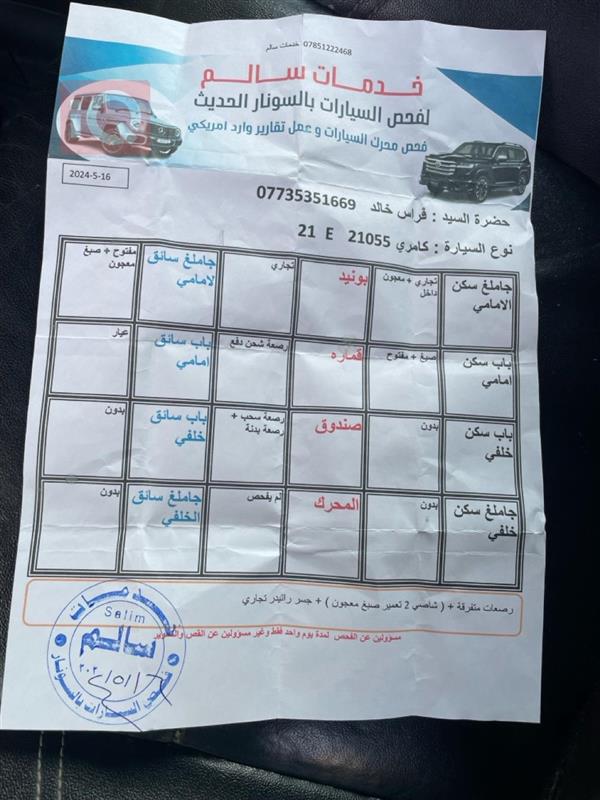 07851222468 خدمات سالم
خدمات سالم
لفحص السيارات بالسونار الحديث
فحص محرك السيارات و عمل تقارير وارد امريكي
2024-5-16
حضرة السيد : فراس خالد 07735351669
نوع السيارة : كامري 21055 E 21
جاملغ سكن الامامي
تجاري + معجون داخل
بونيد
تجاري
جاملغ سائق لامامي
مفتوح + صبغ معجون
باب سكن امامي
صبغ + مفتوح
قماره
رصعة شحن دفع
باب سائق امامي
عيار
باب سكن خلفي
بدون
صندوق
رصعة سحب + رصعة بدنة
باب سائق خلفي
بدون
جاملغ سكن خلفي
بدون
المحرك
لم يفحص
جاملغ سائق الخلفي
بدون
رصعات متفرقة + ( شاصي 2 تعمير صبغ معجون ) + جسر راديتر تجاري
مسؤولين عن الفحص لمدة يوم واحد فقط وغير مسؤولين عن القص والتدوير
خدمات
Salim
سالم
لفحص السيارات بالسونار